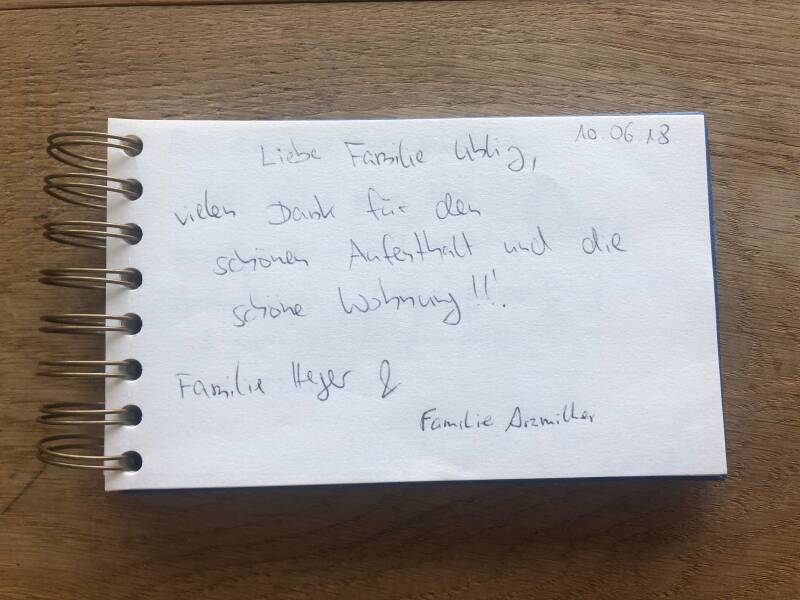 10.06.18
Liebe Familie Uhlig,
vielen Dank für den
schönen Aufenthalt und die
schöne Wohnung!!!
Familie Heyer &
Familie Arzmiller